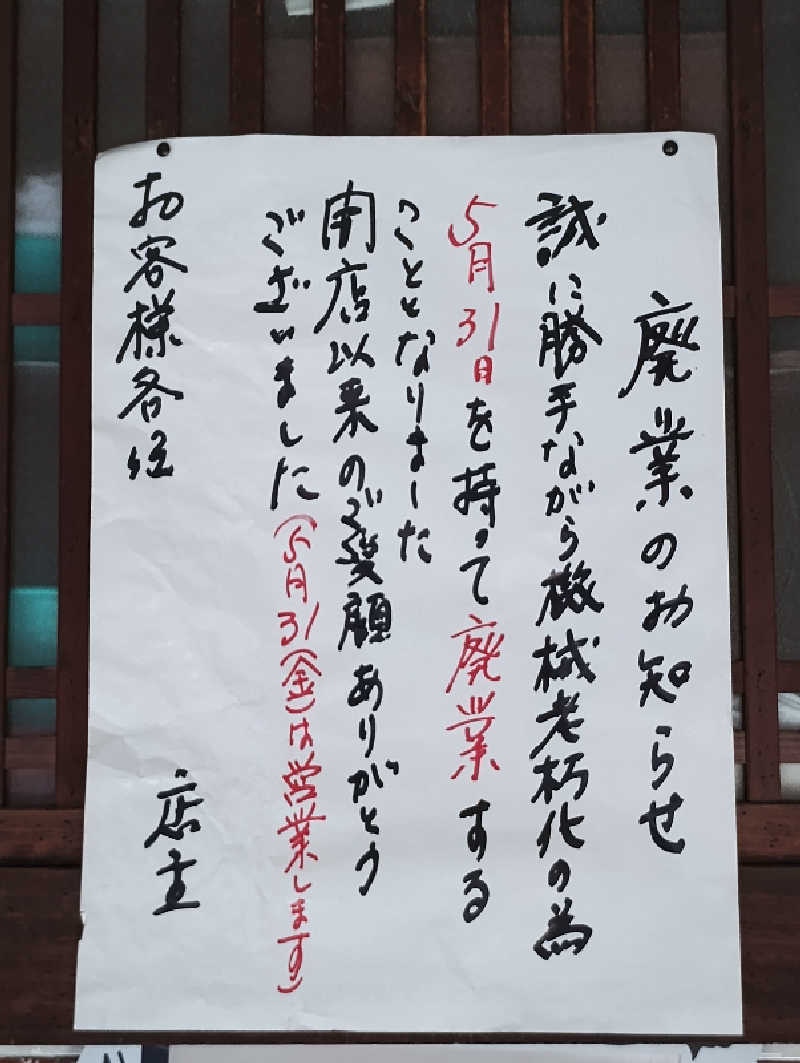 廃業のお知らせ
誠に勝手ながら機械老朽化の為
5月31日を持って廃業する
こととなりました
開店以来のご愛顧ありがとう
ございました(5月31(金)は営業します)
お客様各位
店主